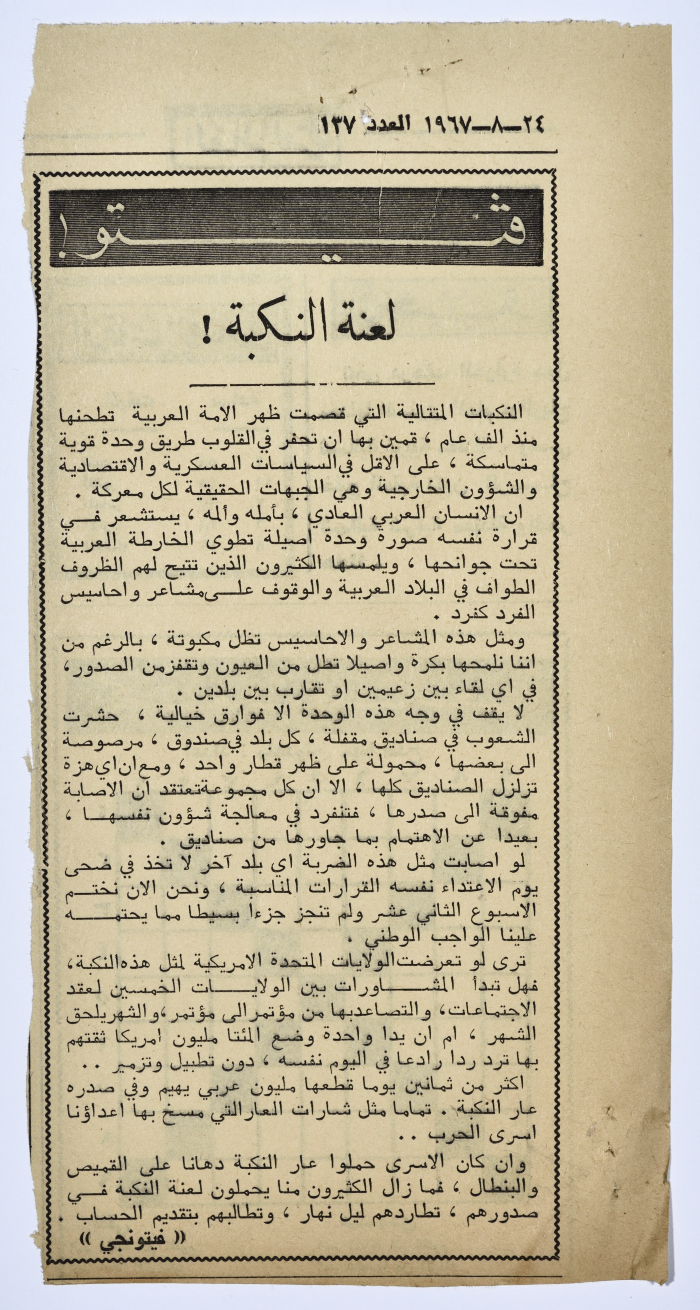 ٢٤-٨-١٩٦٧ العدد ١٣٧
ڤيتو !
لعنة النكبة !
النكبات المتتالية التي قصمت ظهر الامة العربية تطحنها
منذ الف عام ، قمين بها ان تحفر في القلوب طريق وحدة قوية
متماسكة ، على الاقل في السياسات العسكرية والاقتصادية
والشؤون الخارجية وهي الجبهات الحقيقية لكل معركة .
ان الانسان العربي العادي ، بأمله وألمه ، يستشعر في
قرارة نفسه صورة وحدة اصيلة تطوي الخارطة العربية
تحت جوانحها ، ويلمسها الكثيرون الذين تتيح لهم الظروف
الطواف في البلاد العربية والوقوف على مشاعر واحاسيس
الفرد كفرد .
ومثل هذه المشاعر والاحاسيس تظل مكبوتة ، بالرغم من
اننا نلمحها بكرة واصيلا تطل من العيون وتقفز من الصدور،
في اي لقاء بين زعيمين او تقارب بين بلدين .
لا يقف في وجه هذه الوحدة الا فوارق خيالية ، حشرت
الشعوب في صناديق مقفلة ، كل بلد في صندوق ، مرصوصة
الى بعضها ، محمولة على ظهر قطار واحد ، ومع ان اي هزة
تزلزل الصناديق كلها ، الا ان كل مجموعة تعتقد ان الاصابة
مفوقة الى صدرها ، فتنفرد في معالجة شؤون نفسها ،
بعيدا عن الاهتمام بما جاورها من صناديق .
لو اصابت مثل هذه الضربة اي بلد آخر لا تخذ في ضحى
يوم الاعتداء نفسه القرارات المناسبة ، ونحن الان نختم
الاسبوع الثاني عشر ولم تنجز جزءا بسيطا مما يحتمه
علينا الواجب الوطني .
ترى لو تعرضت الولايات المتحدة الامريكية لمثل هذه النكبة،
فهل تبدأ المشاورات بين الولايات الخمسين لعقد
الاجتماعات، والتصاعد بها من مؤتمر الى مؤتمر، والشهر يلحق
الشهر ، ام ان يدا واحدة وضع المئتا مليون امريكا ثقتهم
بها ترد ردا رادعا في اليوم نفسه ، دون تطبيل وتزمير . .
اكثر من ثمانين يوما قطعها مليون عربي يهيم وفي صدره
عار النكبة . تماما مثل شارات العار التي مسخ بها اعداؤنا
اسرى الحرب . .
وان كان الاسرى حملوا عار النكبة دهانا على القميص
والبنطال ، فما زال الكثيرون منا يحملون لعنة النكبة في
صدورهم ، تطاردهم ليل نهار ، وتطالبهم بتقديم الحساب .
(( فيتونجي ))